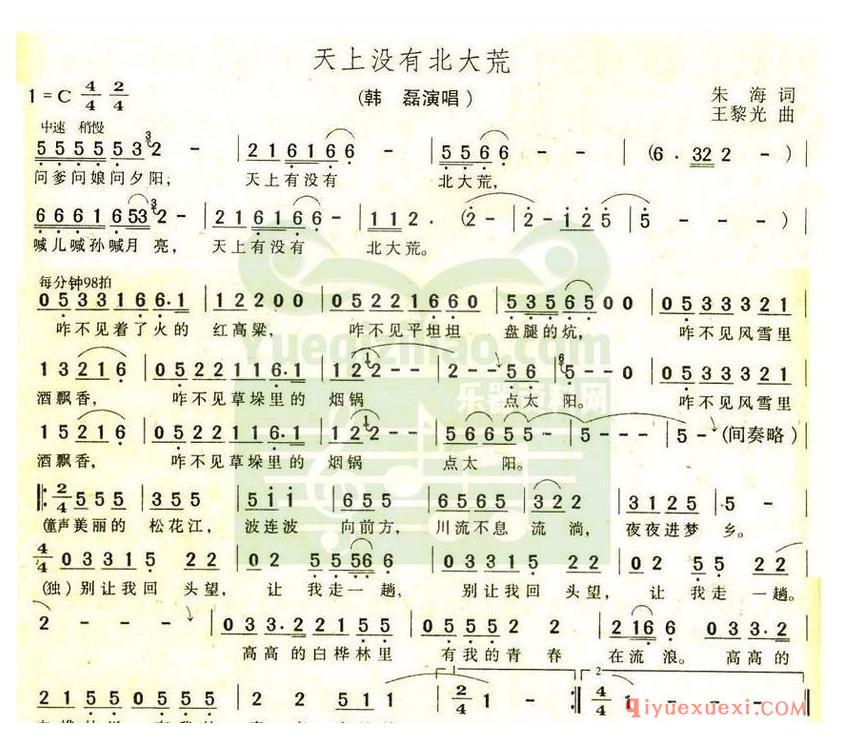 天上没有北大荒
1=C 4/4 2/4
(韩 磊演唱)
朱 海 词
王黎光 曲
中速 稍慢
5 5 5 5 5 5 3 2 - | 2 1 6 1 6 6 - | 5 5 6 6 - - | (6 · 3 2 2 - -)
问爹问娘问夕阳, 天上有没有 北大荒,
6 6 6 1 6 5 3 2 - | 2 1 6 1 6 6 - | 1 1 2 · (2 - | 2 - 1 2 5 | 5 - - -)
喊儿喊孙喊月 亮, 天上有没有 北大荒。
每分钟98拍
0 5 3 3 1 6 6 · 1 | 1 2 2 0 0 | 0 5 2 2 1 6 6 0 | 5 3 5 6 5 0 0 | 0 5 3 3 3 2 1
咋不见着了火的 红高粱, 咋不见平坦坦 盘腿的炕, 咋不见风雪里
1 3 2 1 6 - | 0 5 2 2 1 1 6 · 1 | 1 2 2 - - | 2 - - 5 6 | 5 - - 0 | 0 5 3 3 3 2 1
酒飘香, 咋不见草垛里的 烟锅 点太 阳。 咋不见风雪里
1 5 2 1 6 - | 0 5 2 2 1 1 6 · 1 | 1 2 2 - - | 5 6 6 5 5 - | 5 - - - | 5 - (间奏略)
酒飘香, 咋不见草垛里的 烟锅 点太 阳。
2/4 5 5 5 | 3 5 5 | 5 1 1 | 6 5 5 | 6 5 6 5 | 3 2 2 | 3 1 2 5 | 5 -
(童声)美丽的 松花江, 波连波 向前方, 川流不息 流 淌, 夜夜进梦 乡。
4/4 0 3 3 1 5 2 2 | 0 2 5 5 5 6 6 | 0 3 3 1 5 2 2 | 0 2 5 5 2 2
(独)别让我回 头望, 让 我走一 趟, 别让我回 头望, 让 我走 一趟。
2 - - | 0 3 3 · 2 2 1 5 5 | 0 5 5 5 2 2 | 2 1 6 6 0 3 3 · 2
高高 的白桦林里 有我的青 春 在流 浪。高高的
2 1 5 5 0 5 5 5 | 2 2 5 5 1 | 1 - - - | 2/4 1 - :| 4/4 1 - - -
Yueqiziliao.com
乐器资料网
Qiyuexuexi.COM